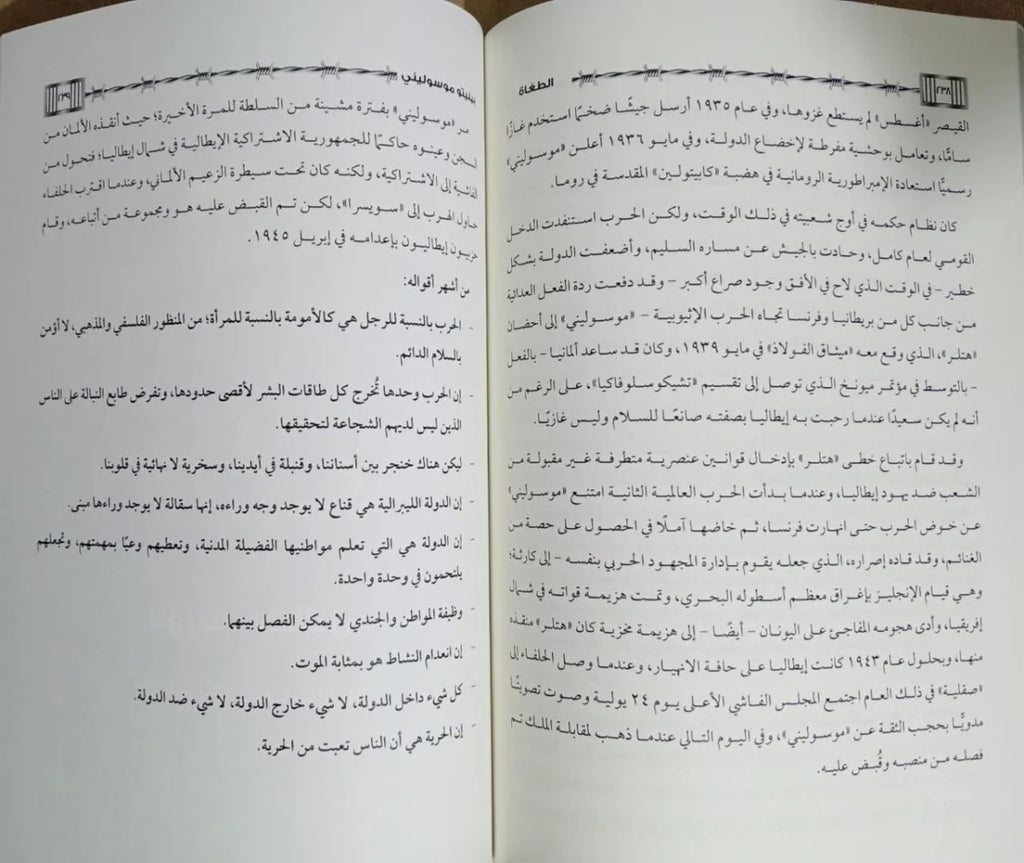 الطغاة
٢٣٨
القيصر «أغسطس» لم يستطع غزوها، وفي عام ١٩٣٥ أرسل جيشًا ضخمًا استخدم غازًا
سامًّا، وتعامل بوحشية مفرطة لإخضاع الدولة، وفي مايو ١٩٣٦ أعلن «موسوليني»
رسميًّا استعادة الإمبراطورية الرومانية في هضبة «كابيتولين» المقدسة في روما.
كان نظام حكمه في أوج شعبيته في ذلك الوقت، ولكن الحرب استنفدت الدخل
القومي لعام كامل، وحادت بالجيش عن مساره السليم، وأضعفت الدولة بشكل
خطير – في الوقت الذي لاح في الأفق وجود صراع أكبر – وقد دفعت ردة الفعل العدائية
من جانب كل من بريطانيا وفرنسا تجاه الحرب الإثيوبية – «موسوليني» إلى أحضان
«هتلر»، الذي وقع معه «ميثاق الفولاذ» في مايو ١٩٣٩، وكان قد ساعد ألمانيا – بالفعل
– بالتوسط في مؤتمر ميونخ الذي توصل إلى تقسيم «تشيكوسلوفاكيا»، على الرغم من
أنه لم يكن سعيدًا عندما رحبت به إيطاليا بصفته صانعًا للسلام وليس غازيًا.
وقد قام باتباع خطى «هتلر» بإدخال قوانين عنصرية متطرفة غير مقبولة من
الشعب ضد يهود إيطاليا، وعندما بدأت الحرب العالمية الثانية امتنع «موسوليني»
عن خوض الحرب حتى انهارت فرنسا، ثم خاضها آملًا في الحصول على حصة من
الغنائم، وقد قاده إصراره، الذي جعله يقوم بإدارة المجهود الحربي بنفسه – إلى كارثة؛
وهي قيام الإنجليز بإغراق معظم أسطوله البحري، وتمت هزيمة قواته في شمال
إفريقيا، وأدى هجومه المفاجئ على اليونان – أيضًا – إلى هزيمة مخزية كان «هتلر» منقذه
منها، وبحلول عام ١٩٤٣ كانت إيطاليا على حافة الانهيار، وعندما وصل الحلفاء إلى
«صقلية» في ذلك العام اجتمع المجلس الفاشي الأعلى يوم ٢٤ يولية وصوت تصويتًا
مدويًّا بحجب الثقة عن «موسوليني»، وفي اليوم التالي عندما ذهب لمقابلة الملك تم
فصله من منصبه وقُبض عليه.
بينيتو موسوليني
٢٣٩
مر «موسوليني» بفترة مشينة من السلطة للمرة الأخيرة؛ حيث أنقذه الألمان من
السجن وعينوه حاكمًا للجمهورية الاشتراكية الإيطالية في شمال إيطاليا؛ فتحول من
الفاشية إلى الاشتراكية، ولكنه كان تحت سيطرة الزعيم الألماني، وعندما اقترب الحلفاء
حاول الهرب إلى «سويسرا»، لكن تم القبض عليه هو ومجموعة من أتباعه، وقام
حزبيون إيطاليون بإعدامه في إبريل ١٩٤٥.
من أشهر أقواله:
- الحرب بالنسبة للرجل هي كالأمومة بالنسبة للمرأة؛ من المنظور الفلسفي والمذهبي، لا أؤمن
بالسلام الدائم.
- إن الحرب وحدها تُخرج كل طاقات البشر لأقصى حدودها، وتفرض طابع النبالة على الناس
الذين ليس لديهم الشجاعة لتحقيقها.
- ليكن هناك خنجر بين أسناننا، وقنبلة في أيدينا، وسخرية لا نهائية في قلوبنا.
- إن الدولة الليبرالية هي قناع لا يوجد وجه وراءه، إنها سقالة لا يوجد وراءها مبنى.
- إن الدولة هي التي تعلم مواطنيها الفضيلة المدنية، وتعطيهم وعيًا بمهمتهم، وتجعلهم
يلتحمون في وحدة واحدة.
- وظيفة المواطن والجندي لا يمكن الفصل بينهما.
- إن انعدام النشاط هو بمثابة الموت.
- كل شيء داخل الدولة، لا شيء خارج الدولة، لا شيء ضد الدولة.
- إن الحرية هي أن الناس تعبت من الحرية.